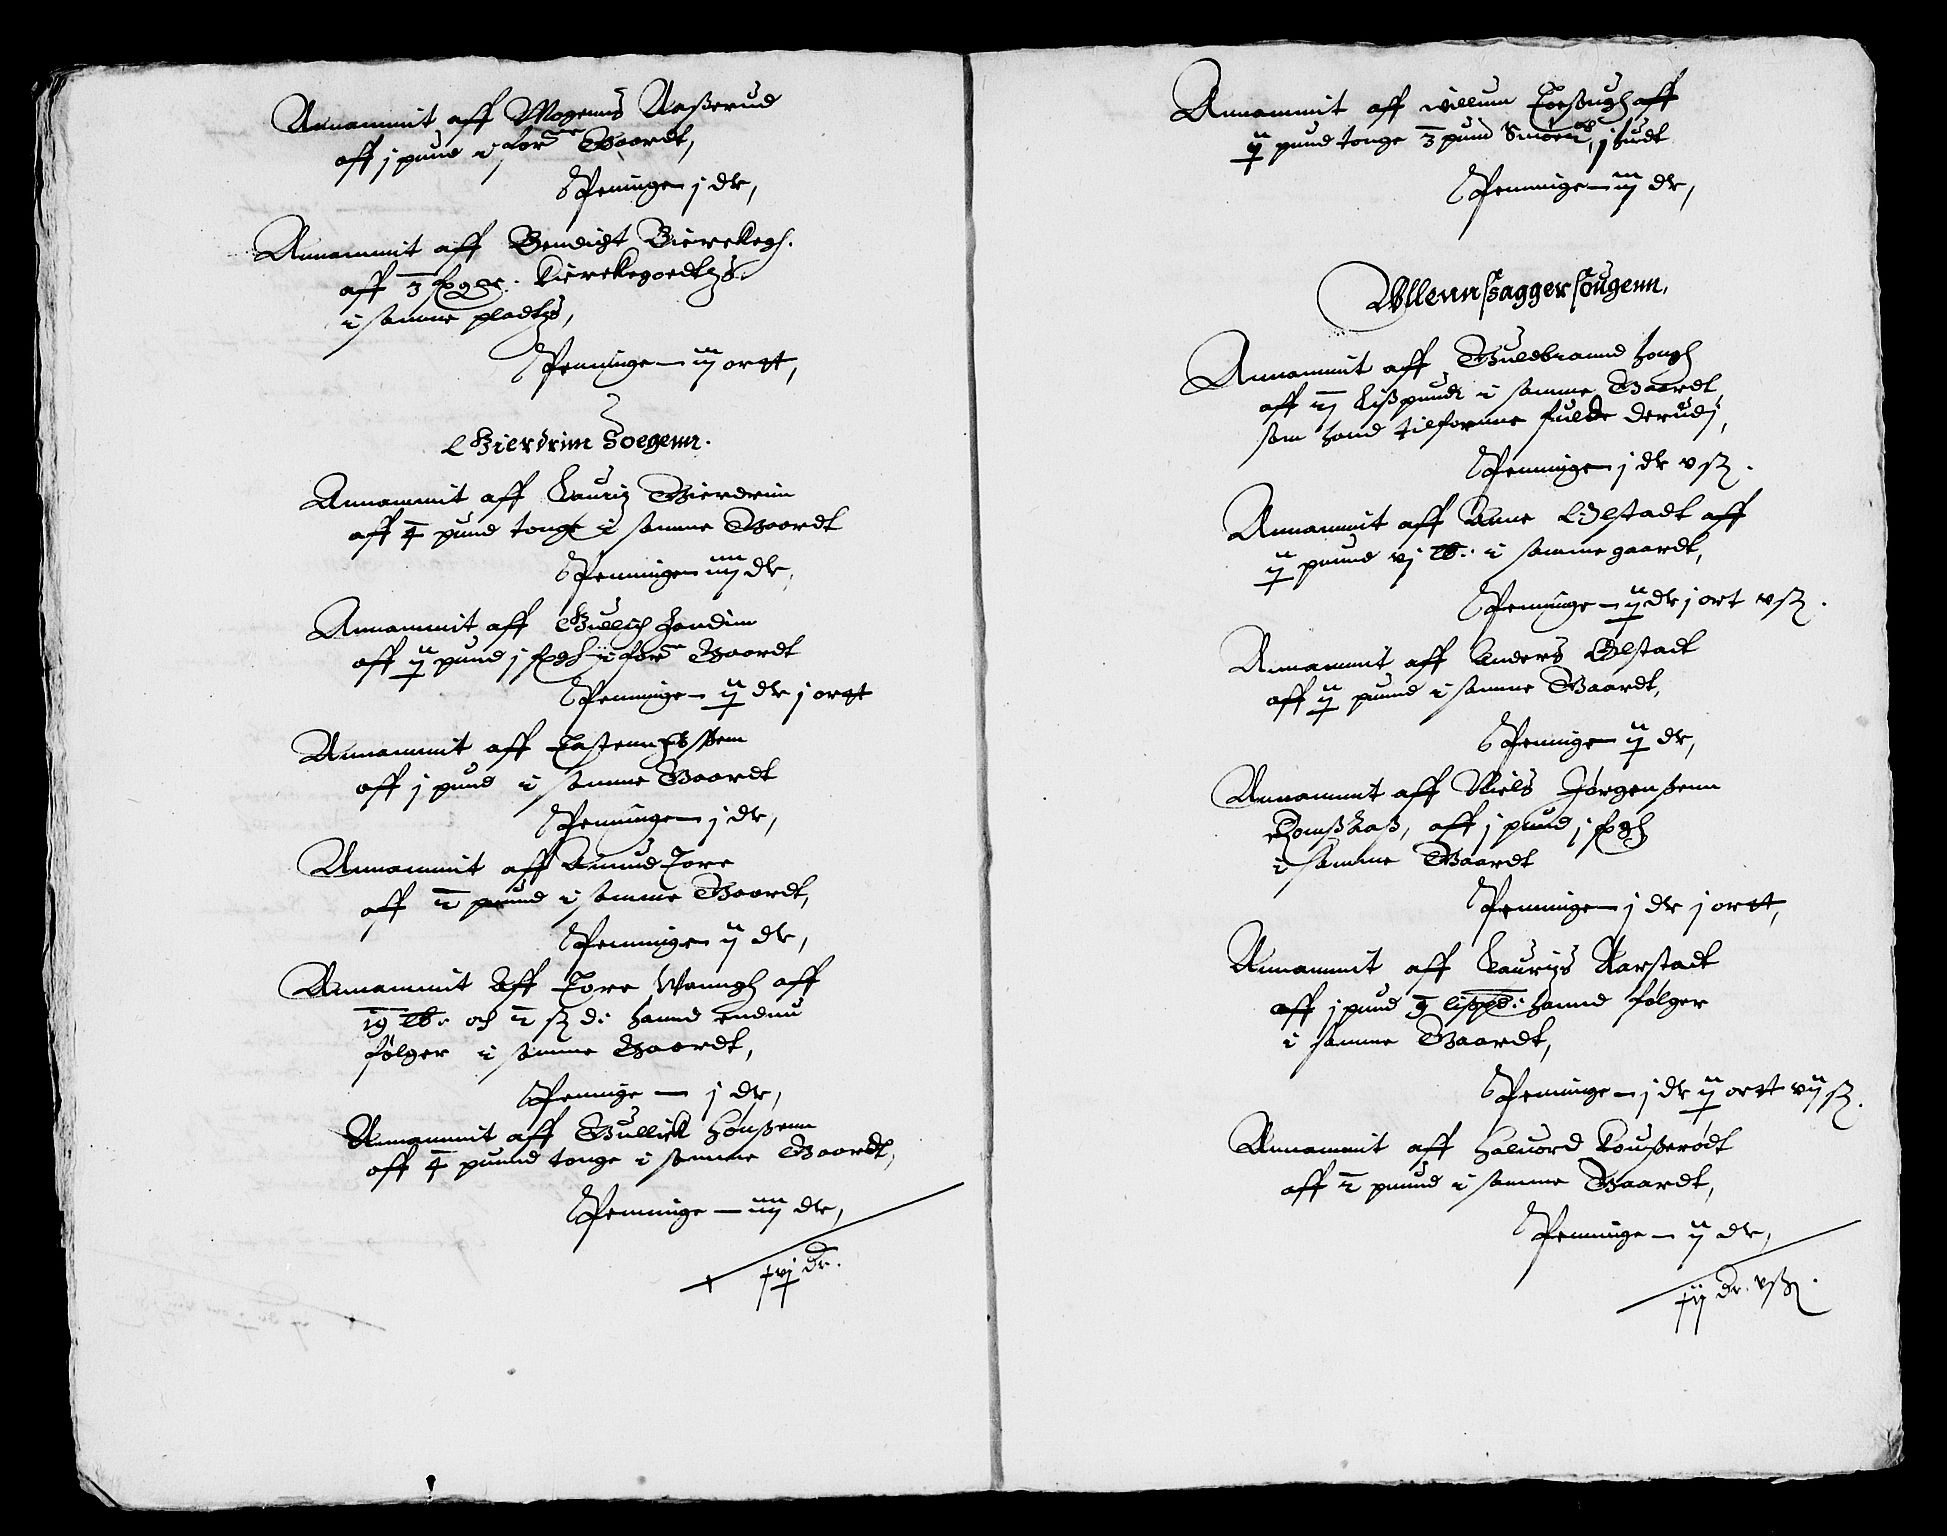 Annammit aff Mogenns Aasserud
aff j pund i for^ne Gaardt,
Penninge — j dr,
Annammit aff Bendicht Bierckegh.
aff 3 . Kierckegoedtz
i samme pladtz,
Penninge — iij ortt,
Gierdrim Soegenn.
Annammit aff Lauritz Gierdrim
aff 4 pund tonge i samme Gaardt
Penninge iiij dr,
Annammit aff Gullich Handim
aff ij pund j i for^ne Gaardt
Penninge — ij dr j ortt
Annammit aff
aff j pund i samme Gaardt
Penninge — j dr,
Annammit aff Amund Tore
aff 2 pund i samme Gaardt,
Penninge ij dr,
Annammit aff Tore Wanngh aff
19 lb. och 2 sz d: hannd endnu
følger i samme Gaardt,
Penninge — j dr,
Annammit aff Gullick Honssenn
aff 4 puund tonge i samme Gaardt,
Penninge — iiij dr,
xvj dr.
Annammit aff willum aff
ij pund tonge 3 pund j hudt
Penninge — iij dr,
Ullennsagger sougenn.
Annammit aff Guldbrannd Hough
aff 6 Lisspund i samme Gaardt,
som hand tilfornne fulde derudj,
Penninge — j dr v sz.
Annammit aff Anne Elstadt aff
ij pund vj lb. i samme gaardt,
Penninge — ij dr j ort v sz.
Annammit aff Anders Elstadt
aff ij pund i samme Gaardt,
Penninge ij dr,
Annammit aff Niels Jørgenssenn
aff j pund j
i samme Gaardt
Penninge — j dr j ortt,
Annammit aff Lauritzs Aarstadt
aff j pund 9 hannd følger
i samme Gaardt,
Penninge — j dr ij ortt vij sz.
Annammit aff Haluord Kousserødt
aff 2 puund i samme Gaardt,
Penninge — ij dr,
xij dr. v sz.